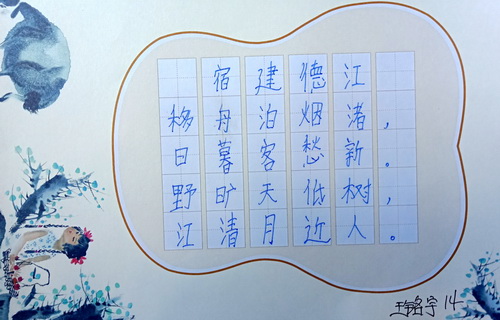 宿建德江
移舟泊烟渚，
日暮客愁新。
野旷天低树，
江清月近人。
14